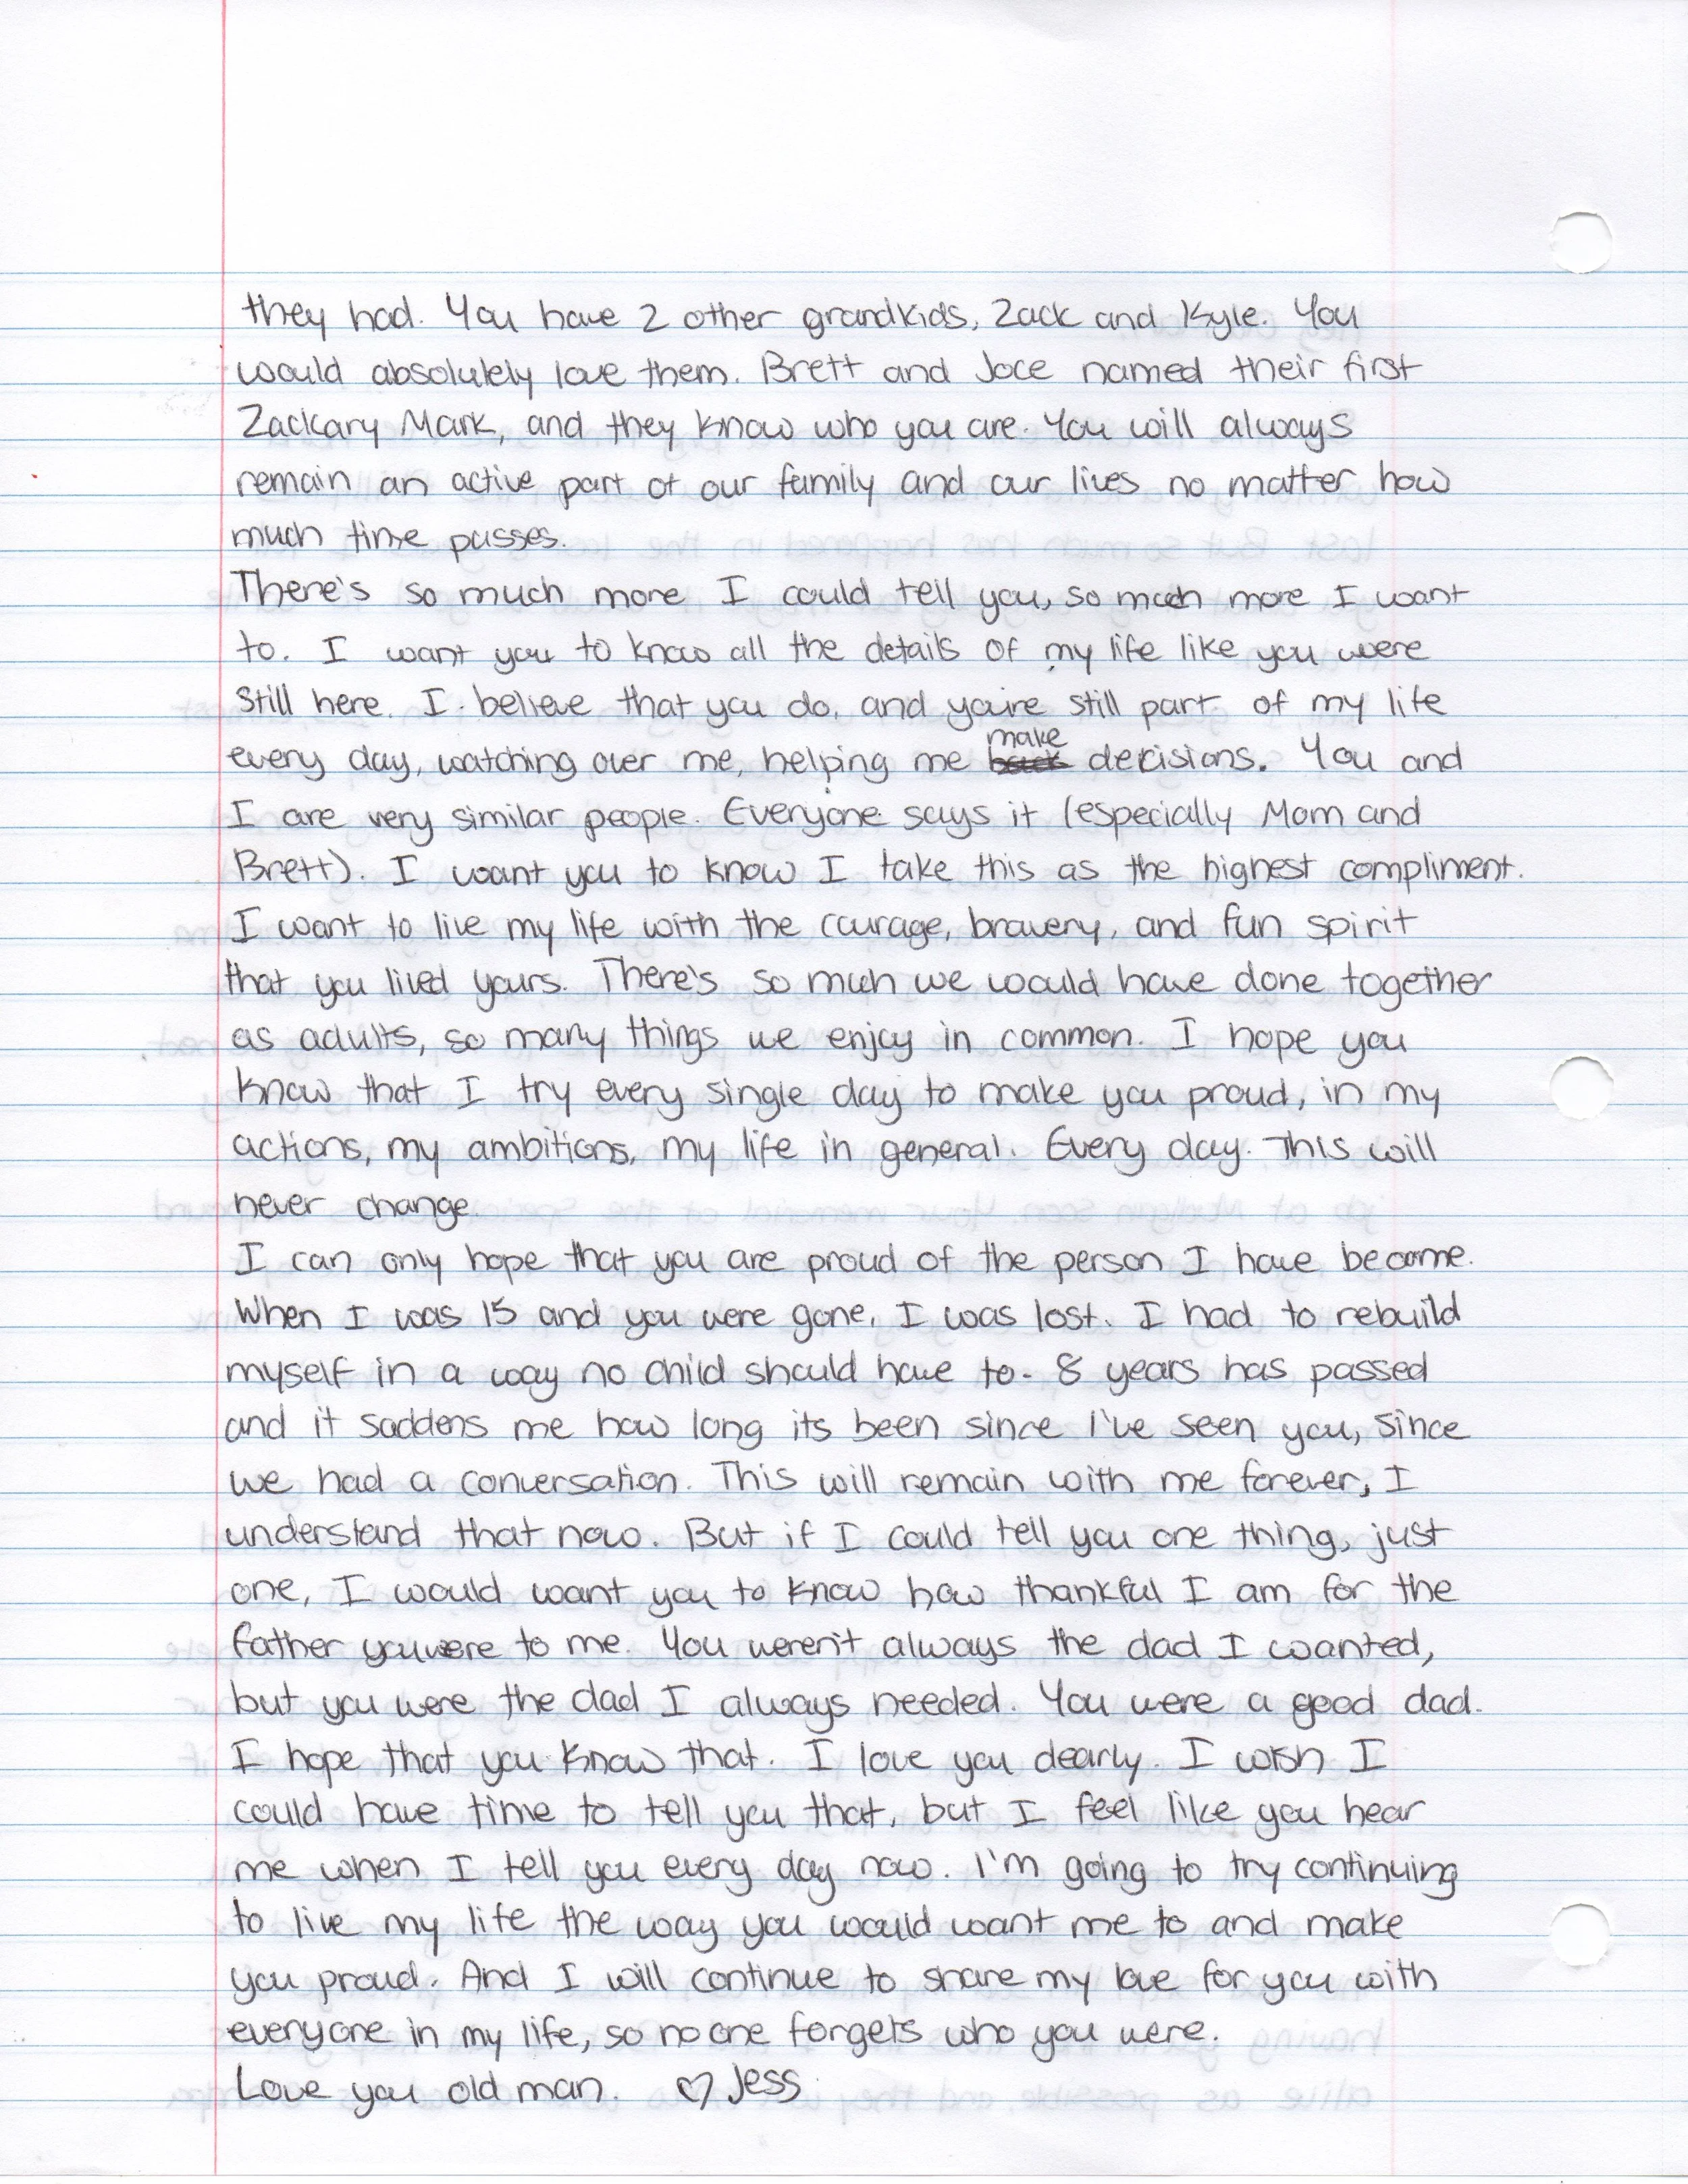 they had. You have 2 other grandkids, Zack and Kyle. You
would absolutely love them. Brett and Joce named their first
Zackary Mark, and they know who you are. You will always
remain an active part of our family and our lives no matter how
much time passes.
There's so much more I could tell you, so much more I want
to. I want you to know all the details of my life like you were
still here. I believe that you do, and you're still part of my life
every day, watching over me, helping me make decisions. You and
I are very similar people. Everyone says it (especially Mom and
Brett). I want you to know I take this as the highest compliment.
I want to live my life with the courage, bravery, and fun spirit
that you lived yours. There's so much we would have done together
as adults, so many things we enjoy in common. I hope you
know that I try every single day to make you proud, in my
actions, my ambitions, my life in general. Every day. This will
never change.
I can only hope that you are proud of the person I have become.
When I was 15 and you were gone, I was lost. I had to rebuild
myself in a way no child should have to. 8 years has passed
and it saddens me how long its been since I've seen you, since
we had a conversation. This will remain with me forever, I
understand that now. But if I could tell you one thing, just
one, I would want you to know how thankful I am for the
father you were to me. You weren't always the dad I wanted,
but you were the dad I always needed. You were a good dad.
I hope that you know that. I love you dearly. I wish I
could have time to tell you that, but I feel like you hear
me when I tell you every day now. I'm going to try continuing
to live my life the way you would want me to and make
you proud. And I will continue to share my love for you with
everyone in my life, so no one forgets who you were.
Love you old man. ♡ Jess